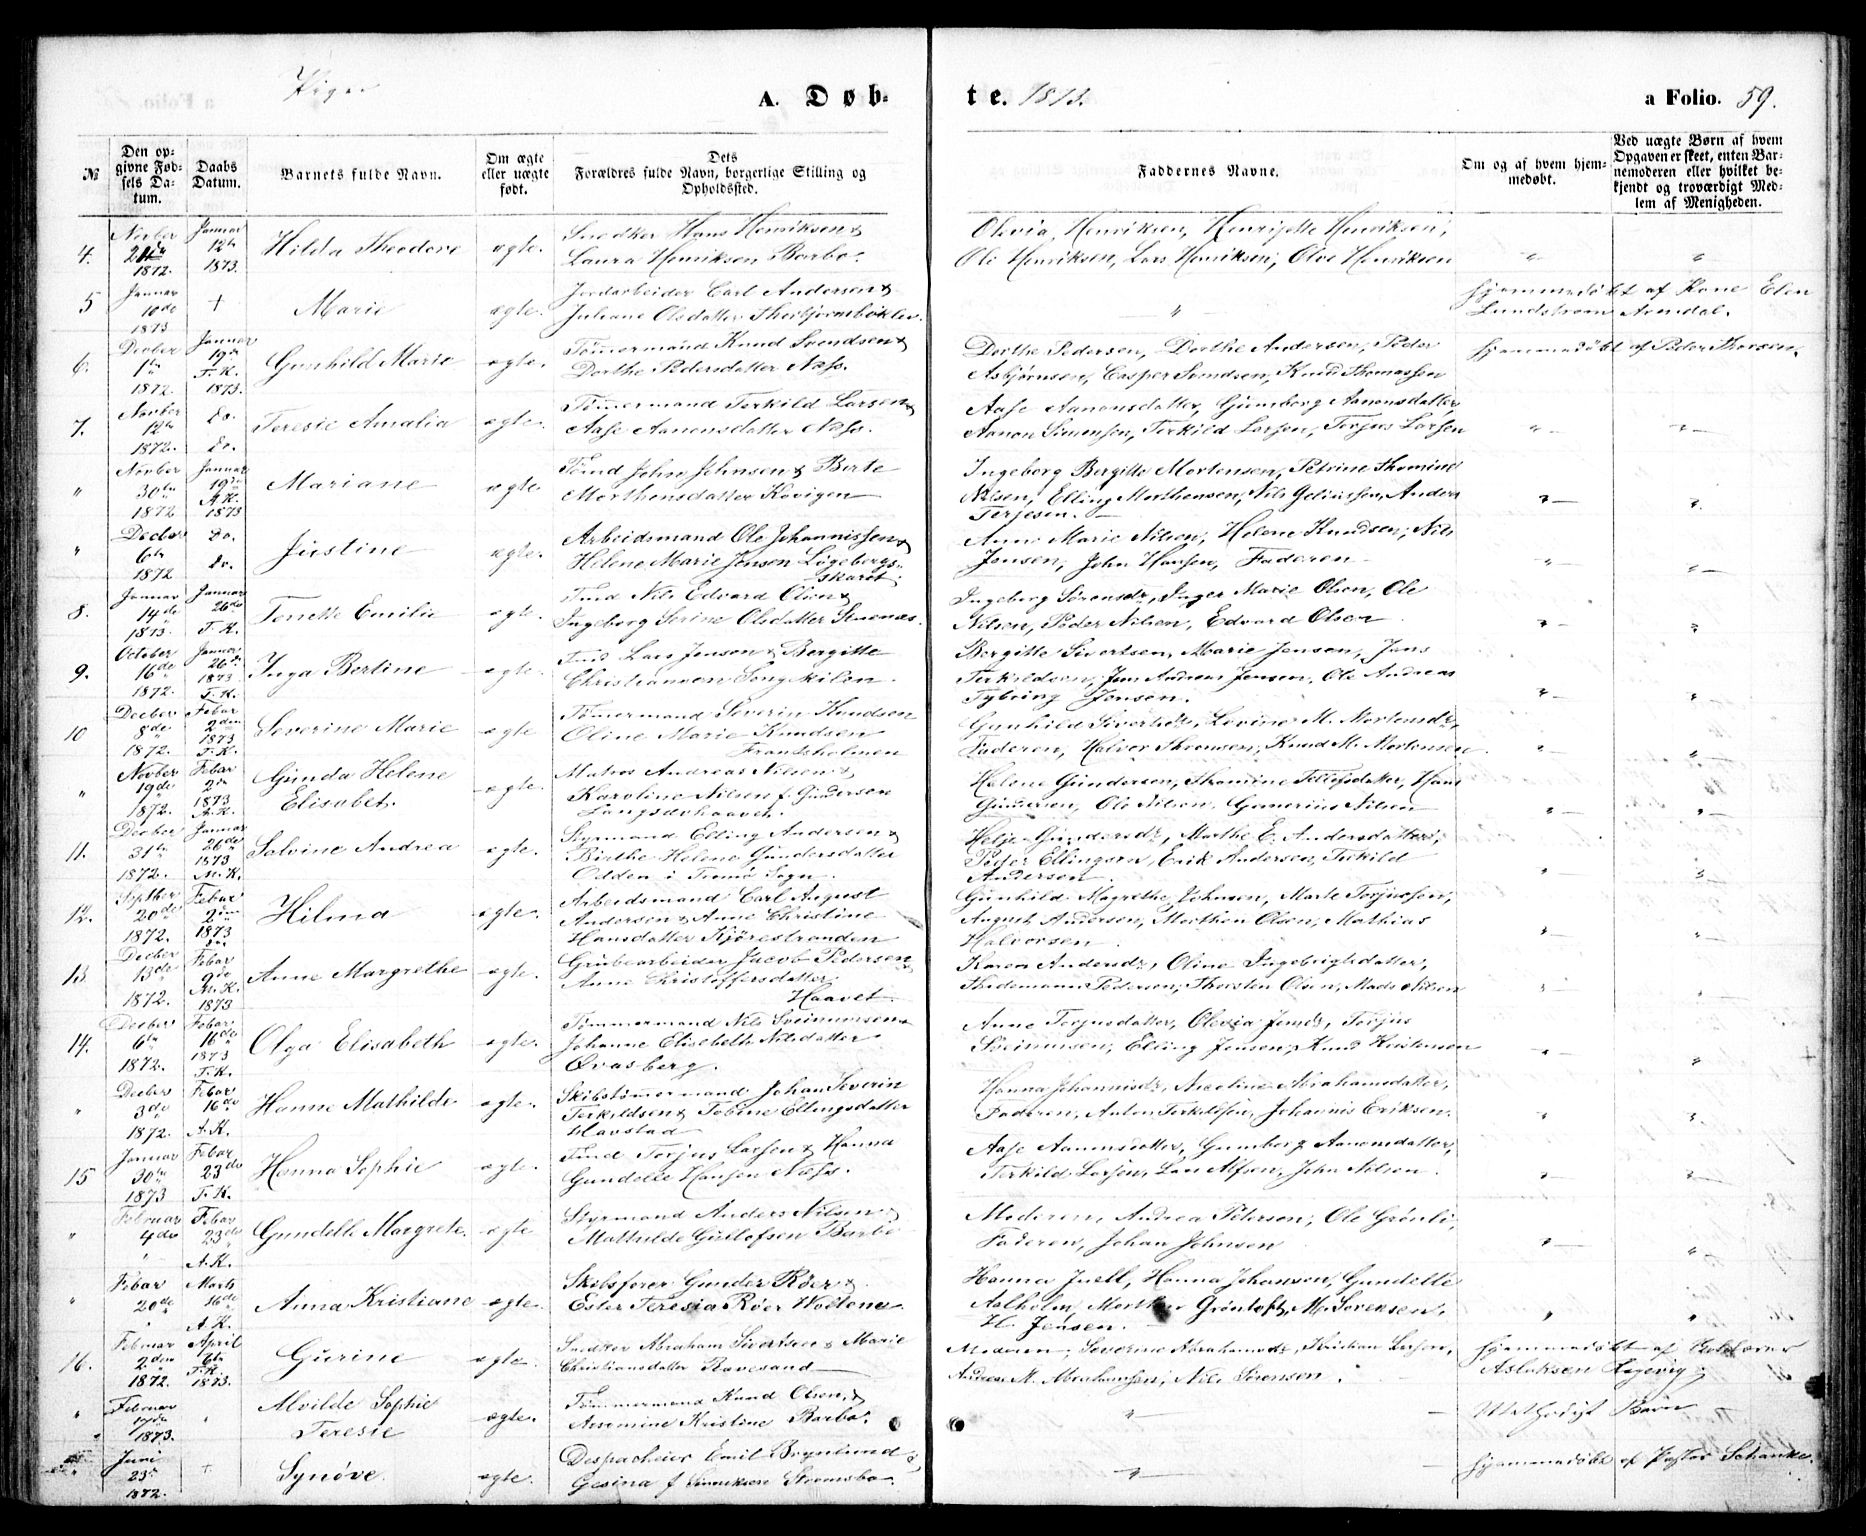 Piger
A. Døb-
te. 1873.
a Folio. 59.
№
Den op-
givne Fød-
sels Da-
tum.
Daabs
Datum.
Barnets fulde Navn.
Om ægte
eller uægte
født.
Dets
Forældres fulde Navn, borgerlige Stilling og
Opholdssted.
Faddernes Navne.
Om og af hvem hjem-
medøbt.
Ved uægte Børn af hvem
Opgaven er skeet, enten Bar-
nemoderen eller hvilket be-
kjendt og troværdigt Med-
lem af Menigheden.
4. Novber 1872. Januar 12te 1873. Hilda Theodore ægte.
Snedker Hans Henriksen &
Laura Henriksen Barbo.
Olivia Henriksen, Henrijette Henriksen,
Ole Henriksen, Lars Henriksen, Olve Henriksen
5 Januar 10de 1873 + Marie ægte.
Jordarbeider Carl Andersen &
Juliane Olsdatter
hjemmedøbt af Kone Elen
Lundstrøm Arendal.
6. Decber 1te 1872. Januar 19de T. K. 1873. Gunhild Marie ægte.
Tømermand Knud Svendsen &
Dorthe Pedersdatter Næss.
Dorthe Pedersen, Dorthe Andersen, Peder
Asbjørnsen, Casper Svendsen, Knud Thomassen
hjemmedøbt af Peder Thorsen.
7. Novber 12te 1872. do. do. Teresie Amalia ægte.
Tømermand Terkild Larsen &
Aase Aanonsdatter Næss.
Aase Aanonsdatter, Gunborg Aanonsdatter,
Aanon Simonsen, Terkild Larsen, Terjus Larsen
" Novber 30te 1872 Januar 19de A. K. 1873 Mariane ægte
Tmd John Johnsen & Berte
Morthensdatter Kovigen
Ingeborg Bergitte Mortensen, Petrine Thomine
Nilsen, Elling Morthensen, Nils Anders
Terjesen.
" Decber 6te 1872 do. do. Justine ægte.
Arbeidsmand Ole Johannissen &
Helene Marie Jensen Løgebergs-
skaret.
Anne Marie Nilsen, Helene Knudsen, Nils
Jensen, John Hansen, Faderen
8. Januar 14de 1873. Januar 26de T. K. Tonette Emilie ægte.
Tmd Nils Edvard Olsen &
Ingeborg Serine Olsdatter Stuenes.
Ingeborg Sørensdr, Inger Marie Olsen, Ole
Nilsen, Peder Nilsen, Edvard Olsen
9. October 16de 1872. Januar 26de 1873 T. K. Inga Bertine ægte.
Tmd Lars Jensen & Bergitte
Christiansen Songekilen.
Bergitte Sivertsen, Marie Jensen, Jens
Terkildsen, Jens Andreas Jensen, Ole Andreas
Tybring Jensen.
10 Decber 8de 1872. Febar 2den 1873 T. K. Severine Marie ægte
Tømermand Severin Knudsen
Oline Marie Knudsen
Frandsholmen
Gunhild Sivertsdr, Lovine M. Mortensdr,
Faderen, Halvor Thomsen, Knud M. Mortensen
" Novber 19de 1872. Febar 2den 1873 A. K. Gunda Helene
Elisabet. ægte.
Matros Andreas Nilsen &
Karoline Nilsen f. Gundersen
Helene Gundersen, Thomine Tellefsdatter, Hans
Gundersen, Ole Nilsen, Gunerius Nilsen
11. Decber 31te 1872. Januar 26de 1873 M. K. Solvine Andrea ægte.
Styrmand Elling Andersen &
Birthe Helene Gundersdatter
Odden i Tromø Sogn.
Helje Gundersdr, Marthe E. Andersdatter,
Peder Ellingsen, Erik Andersen, Terkild
Andersen
12. Septber 20de 1872. Febar 2den 1873 do. Hilma ægte.
Arbeidsmand Carl August
Andersen & Anne Christine
Hansdatter Kjørestranden
Gunhild Magrethe Johnsen, Marte Torjussen,
August Andersen, Morthen Olsen, Mathias
Halvorsen
13 Decber 13de 1872. Febar 9de M. K. 1873 Anne Margrethe ægte.
Grubearbeider Jacob Pedersen &
Anne Christoffersdatter
Haavet
Karen Andersdr, Oline Ingebrigtsdatter,
Thidemann Pedersen, Thorsten Olsen, Mads Nilsen
14. Decber 6te 1872. Febar 16de 1873 T. K. Olga Elisabeth ægte.
Tømmermand Nils Sveinunsen &
Johanne Elisebeth Nilsdatter
Øvasberg.
Anne Torjusdatter, Olevia Jensdr, Torjus
Sveinunsen, Elling Jensen, Knud Kristensen
" Decber 3de 1872. Febar 16de A. K. Hanne Mathilde ægte.
Skibstømmermand Johan Severin
Terkildsen & Tobine Ellingsdatter
Havstad
Hanna Johannisdr, Nicoline Abrahamsdatter,
Faderen, Anton Terkildsen, Johannis Eriksen.
15 Januar 30te 1873 Febar 23de T. K. Hanna Sophie ægte.
Tmd Torjus Larsen & Hanna
Gundelle Hansen Næss.
Aase Aanonsdatter, Gunborg Aanonsdatter,
Terkild Larsen, Lars Alfsen, John Nilsen
" Februar 4de Febar 23de A. K. Gundelle Margrete. ægte
Styrmand Anders Nilsen &
Mathilde Gullofsen Barbo
Moderen, Andrea Petersen, Ole Grønli,
Faderen, Johan Johnsen
" Febar 20de Marts 16de A. K. Anna Kristiane ægte.
Skibsfører Gunder Røer &
Ester Teresia Røer
Hanna Juell, Hanna Johansen, Gundelle
Aalholm, Morthen Grønloft, M. Sørensen,
H. Jensen.
16. Februar 2den 1872. April 6te T. K. 1873. Gurine ægte.
Snedker Abraham Sivertsen & Marie
Christiansdatter Ravesand
Moderen, Severine Abrahamsdr, Kristian Larsen,
Andreas M. Abrahamsen, Nils Sørensen.
hjemmedøbt af
Aslaksen Hagevig
" Februar 1873. Alvilde Sophie
Teresie ægte.
Tømmermand Knud Olsen &
Kristine Barbo.
Børn
" Juni 23de 1872. + Synøve ægte.
Despacheur Emil Brynlund &
Gesina f Strømsbo
hjemmedøbt af Pastor Schanke.